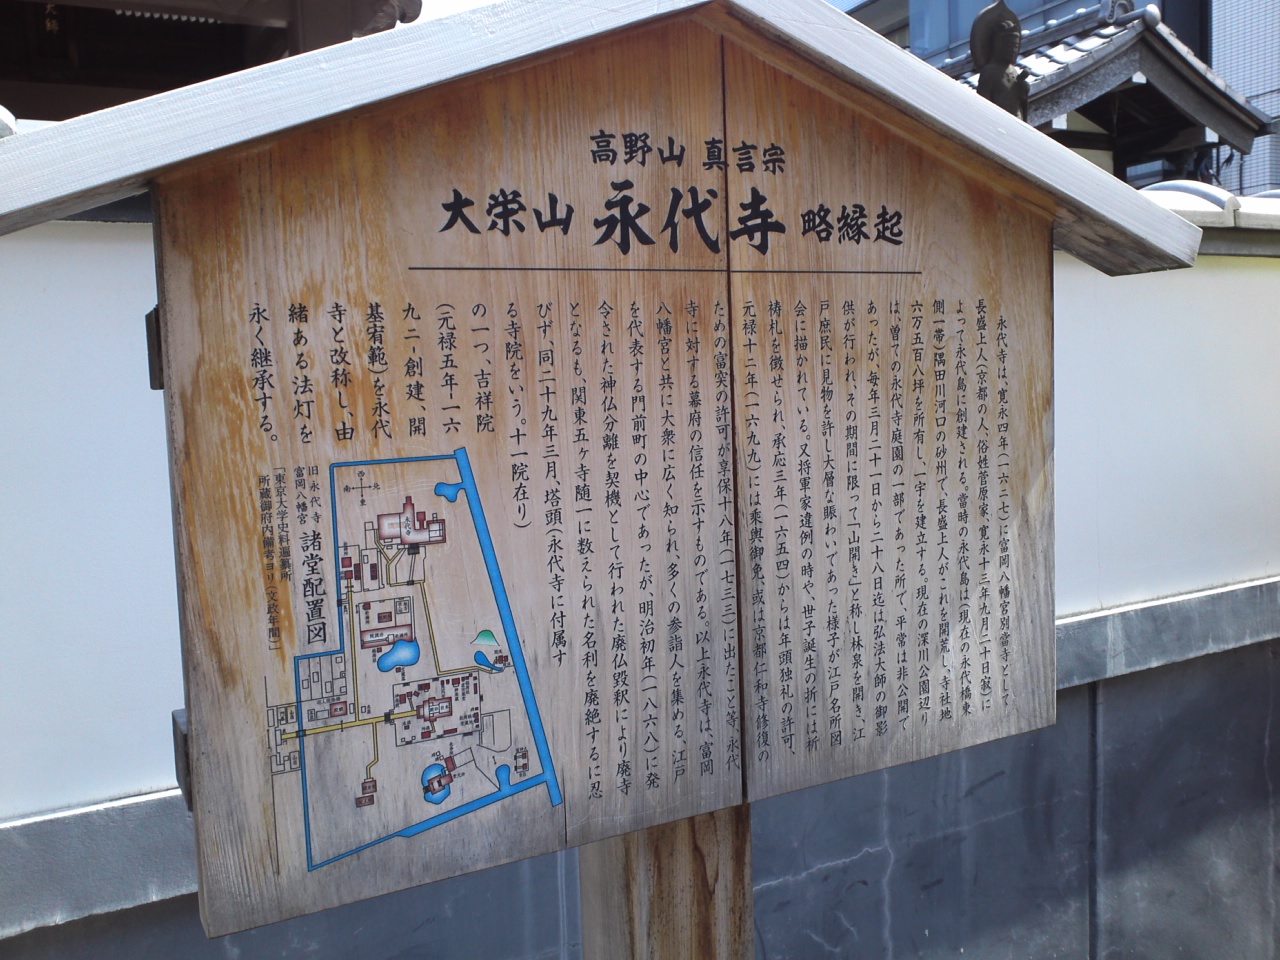 高野山 真言宗
大栄山 永代寺 略縁起
永代寺は、寛永四年(一六二七)に富岡八幡宮別當寺として
長盛上人(京都の人、俗姓菅原家、寛永十三年九月二十日寂)に
よって永代島に創建される。當時の永代島は(現在の永代橋東
側一帯)隅田川河口の砂州で、長盛上人がこれを開荒し、寺社地
六万五百八坪を所有し、一宇を建立する。現在の深川公園辺り
は、曽ての永代寺庭園の一部であった所で、平常は非公開で
あったが、毎年三月二十一日から二十八日迄は弘法大師の御影
供が行われ、その期間に限って「山開き」と称し林泉を開き、江
戸庶民に見物を許し大層な賑わいであった様子が江戸名所図
会に描かれている。又将軍家違例の時や、世子誕生の折には祈
祷札を徴せられ、承応三年(一六五四)からは年頭独礼の許可、
元禄十二年(一六九九)には乗輿御免、或は京都仁和寺修復の
ための富突の許可が享保十八年(一七三三)に出たこと等、永代
寺に対する幕府の信任を示すものである。以上永代寺は、富岡
八幡宮と共に大衆に広く知られ、多くの参詣人を集める。江戸
を代表する門前町の中心であったが、明治初年(一八六八)に発
令された神仏分離を契機として行われた廃仏毀釈により廃寺
となるも、関東五ヶ寺随一に数えられた名刹を廃絶するに忍
びず、同二十九年三月、塔頭(永代寺に付属す
る寺院をいう。十二院在り)
の一つ、吉祥院
(元禄五年-一六
九二-創建、開
基宥範)を永代
寺と改称し、由
緒ある法灯を
永く継承する。
旧永代寺
富岡八幡宮 諸堂配置図
「東京大学史料編纂所
所蔵御府内備考ヨリ(文政年間)」
西
北
南
東
永代寺